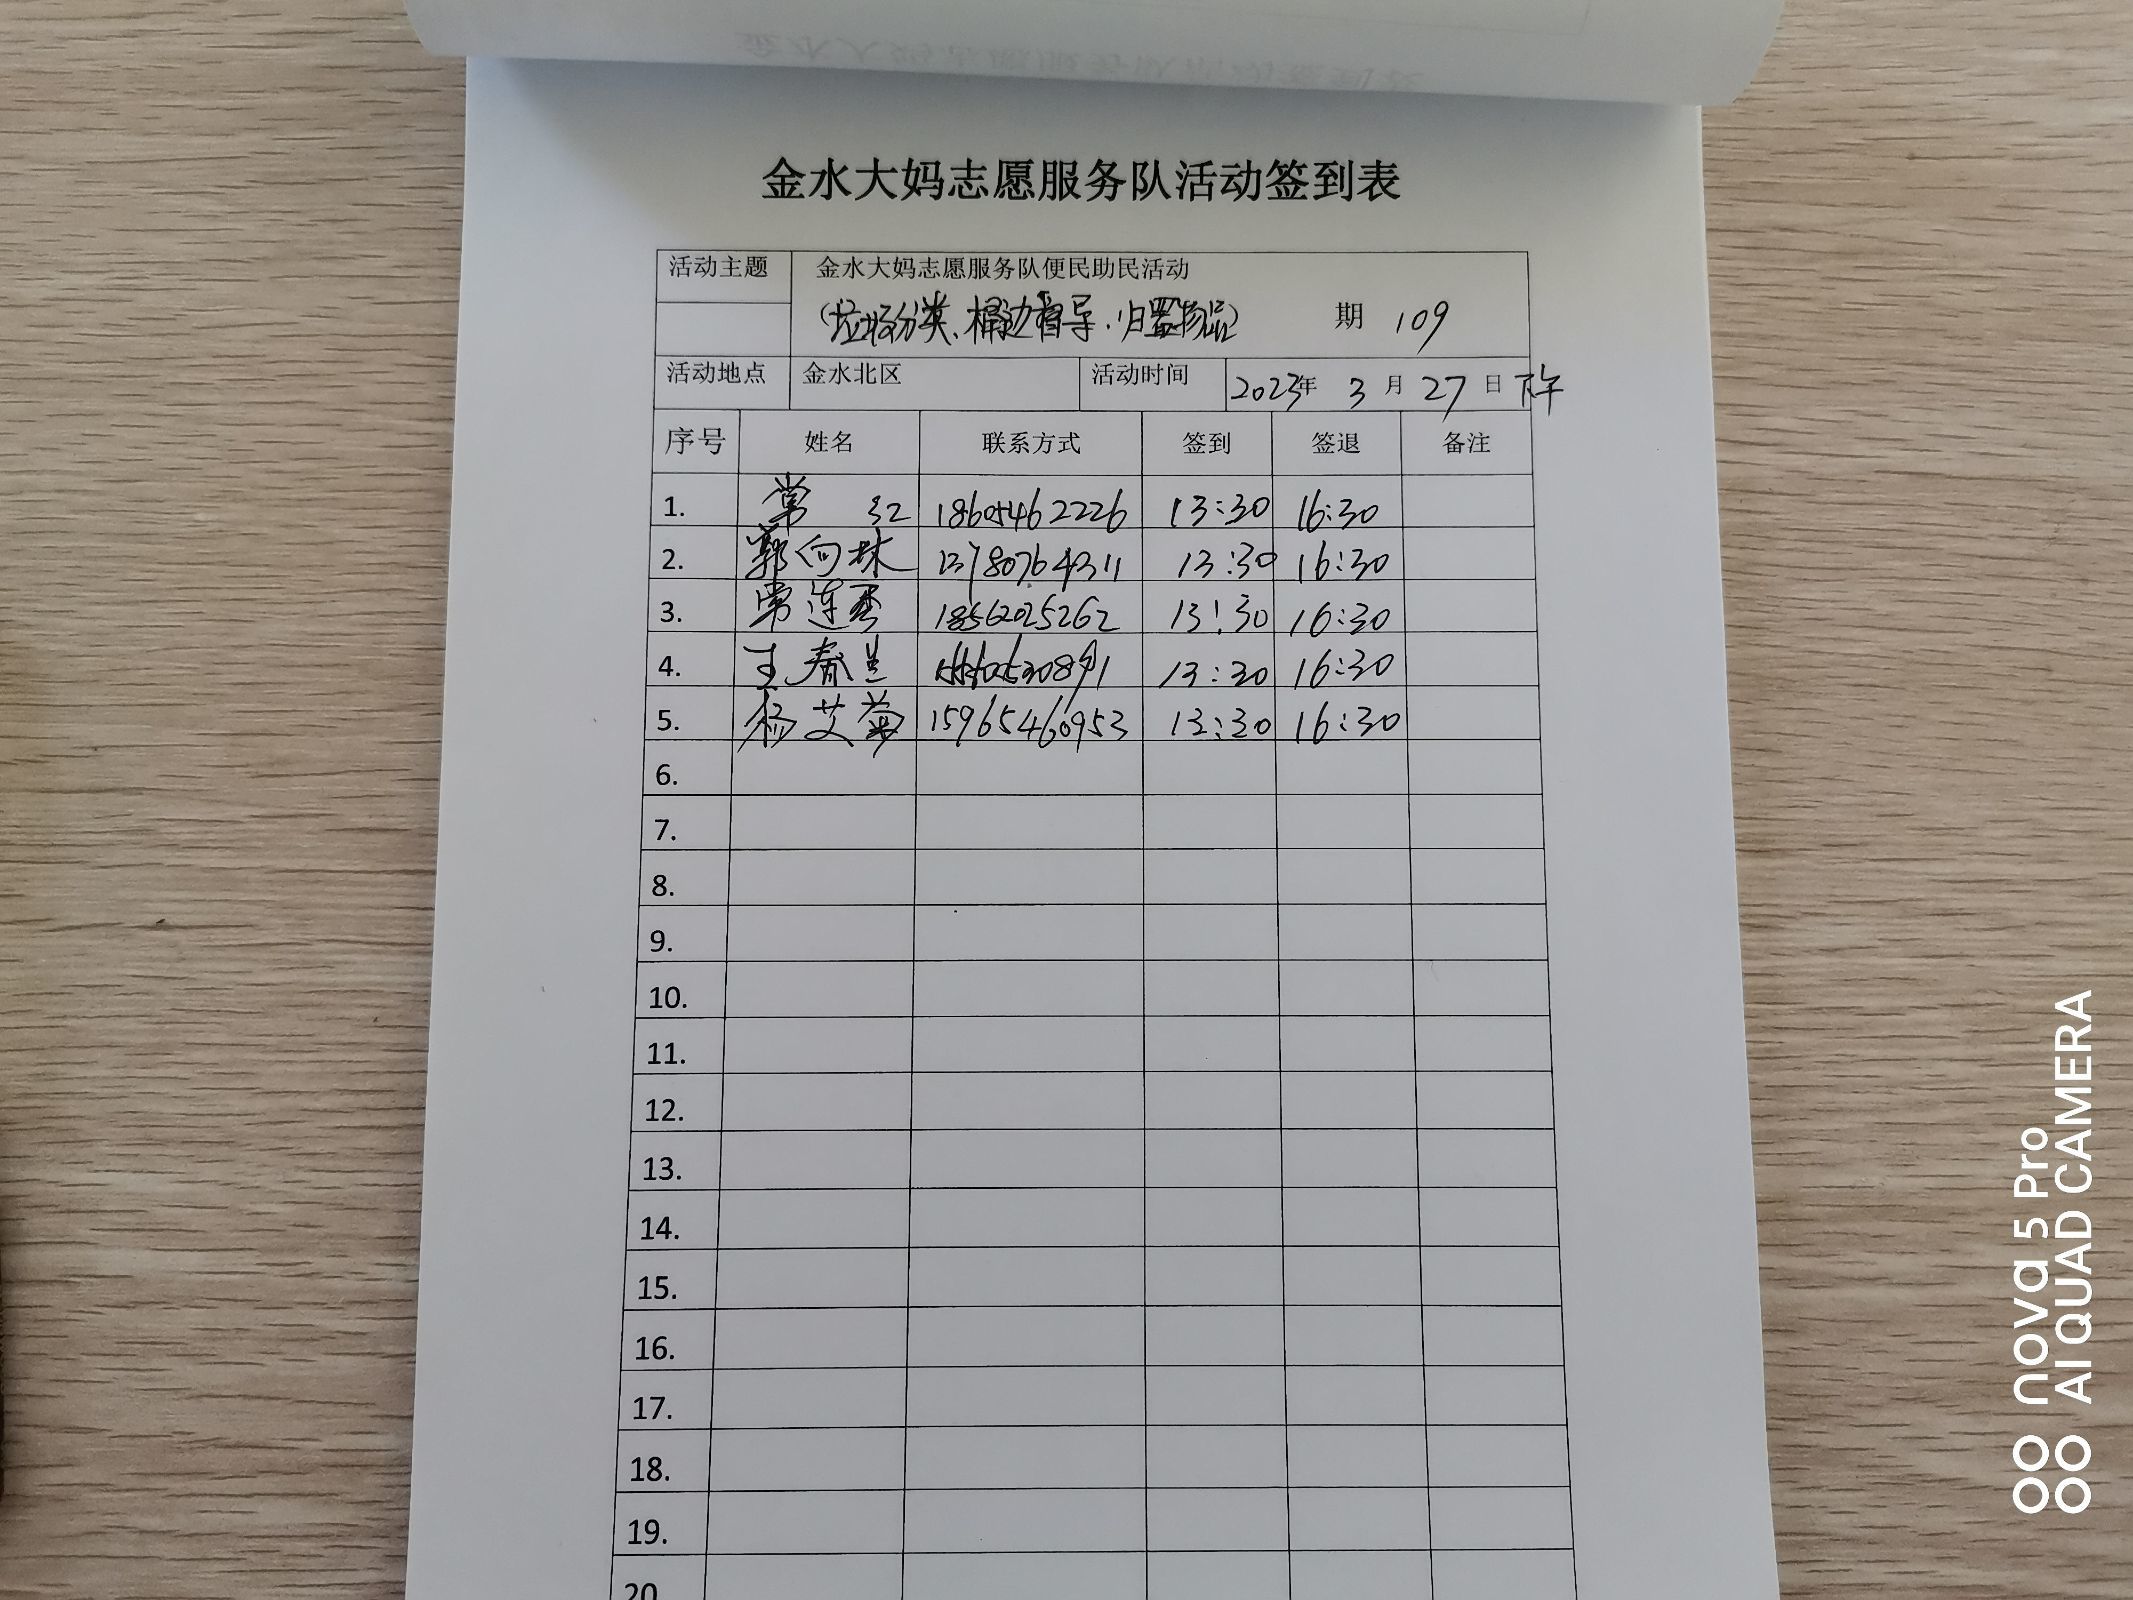 金水大妈志愿服务队活动签到表
活动主题 金水大妈志愿服务队便民助民活动
(垃圾分类、桶边督导、归置物品) 期 109
活动地点 金水北区 活动时间 2023年 3 月 27 日 下午
序号 姓名 联系方式 签到 签退 备注
1. 常 红 18605462226 13:30 16:30
2. 郭向林 13780764311 13:30 16:30
3. 常连秀 18562025262 13:30 16:30
4. 王春兰 13:30 16:30
5. 杨艾菊 15965460953 13:30 16:30
6.
7.
8.
9.
10.
11.
12.
13.
14.
15.
16.
17.
18.
19.
20
nova 5 Pro
AI QUAD CAMERA